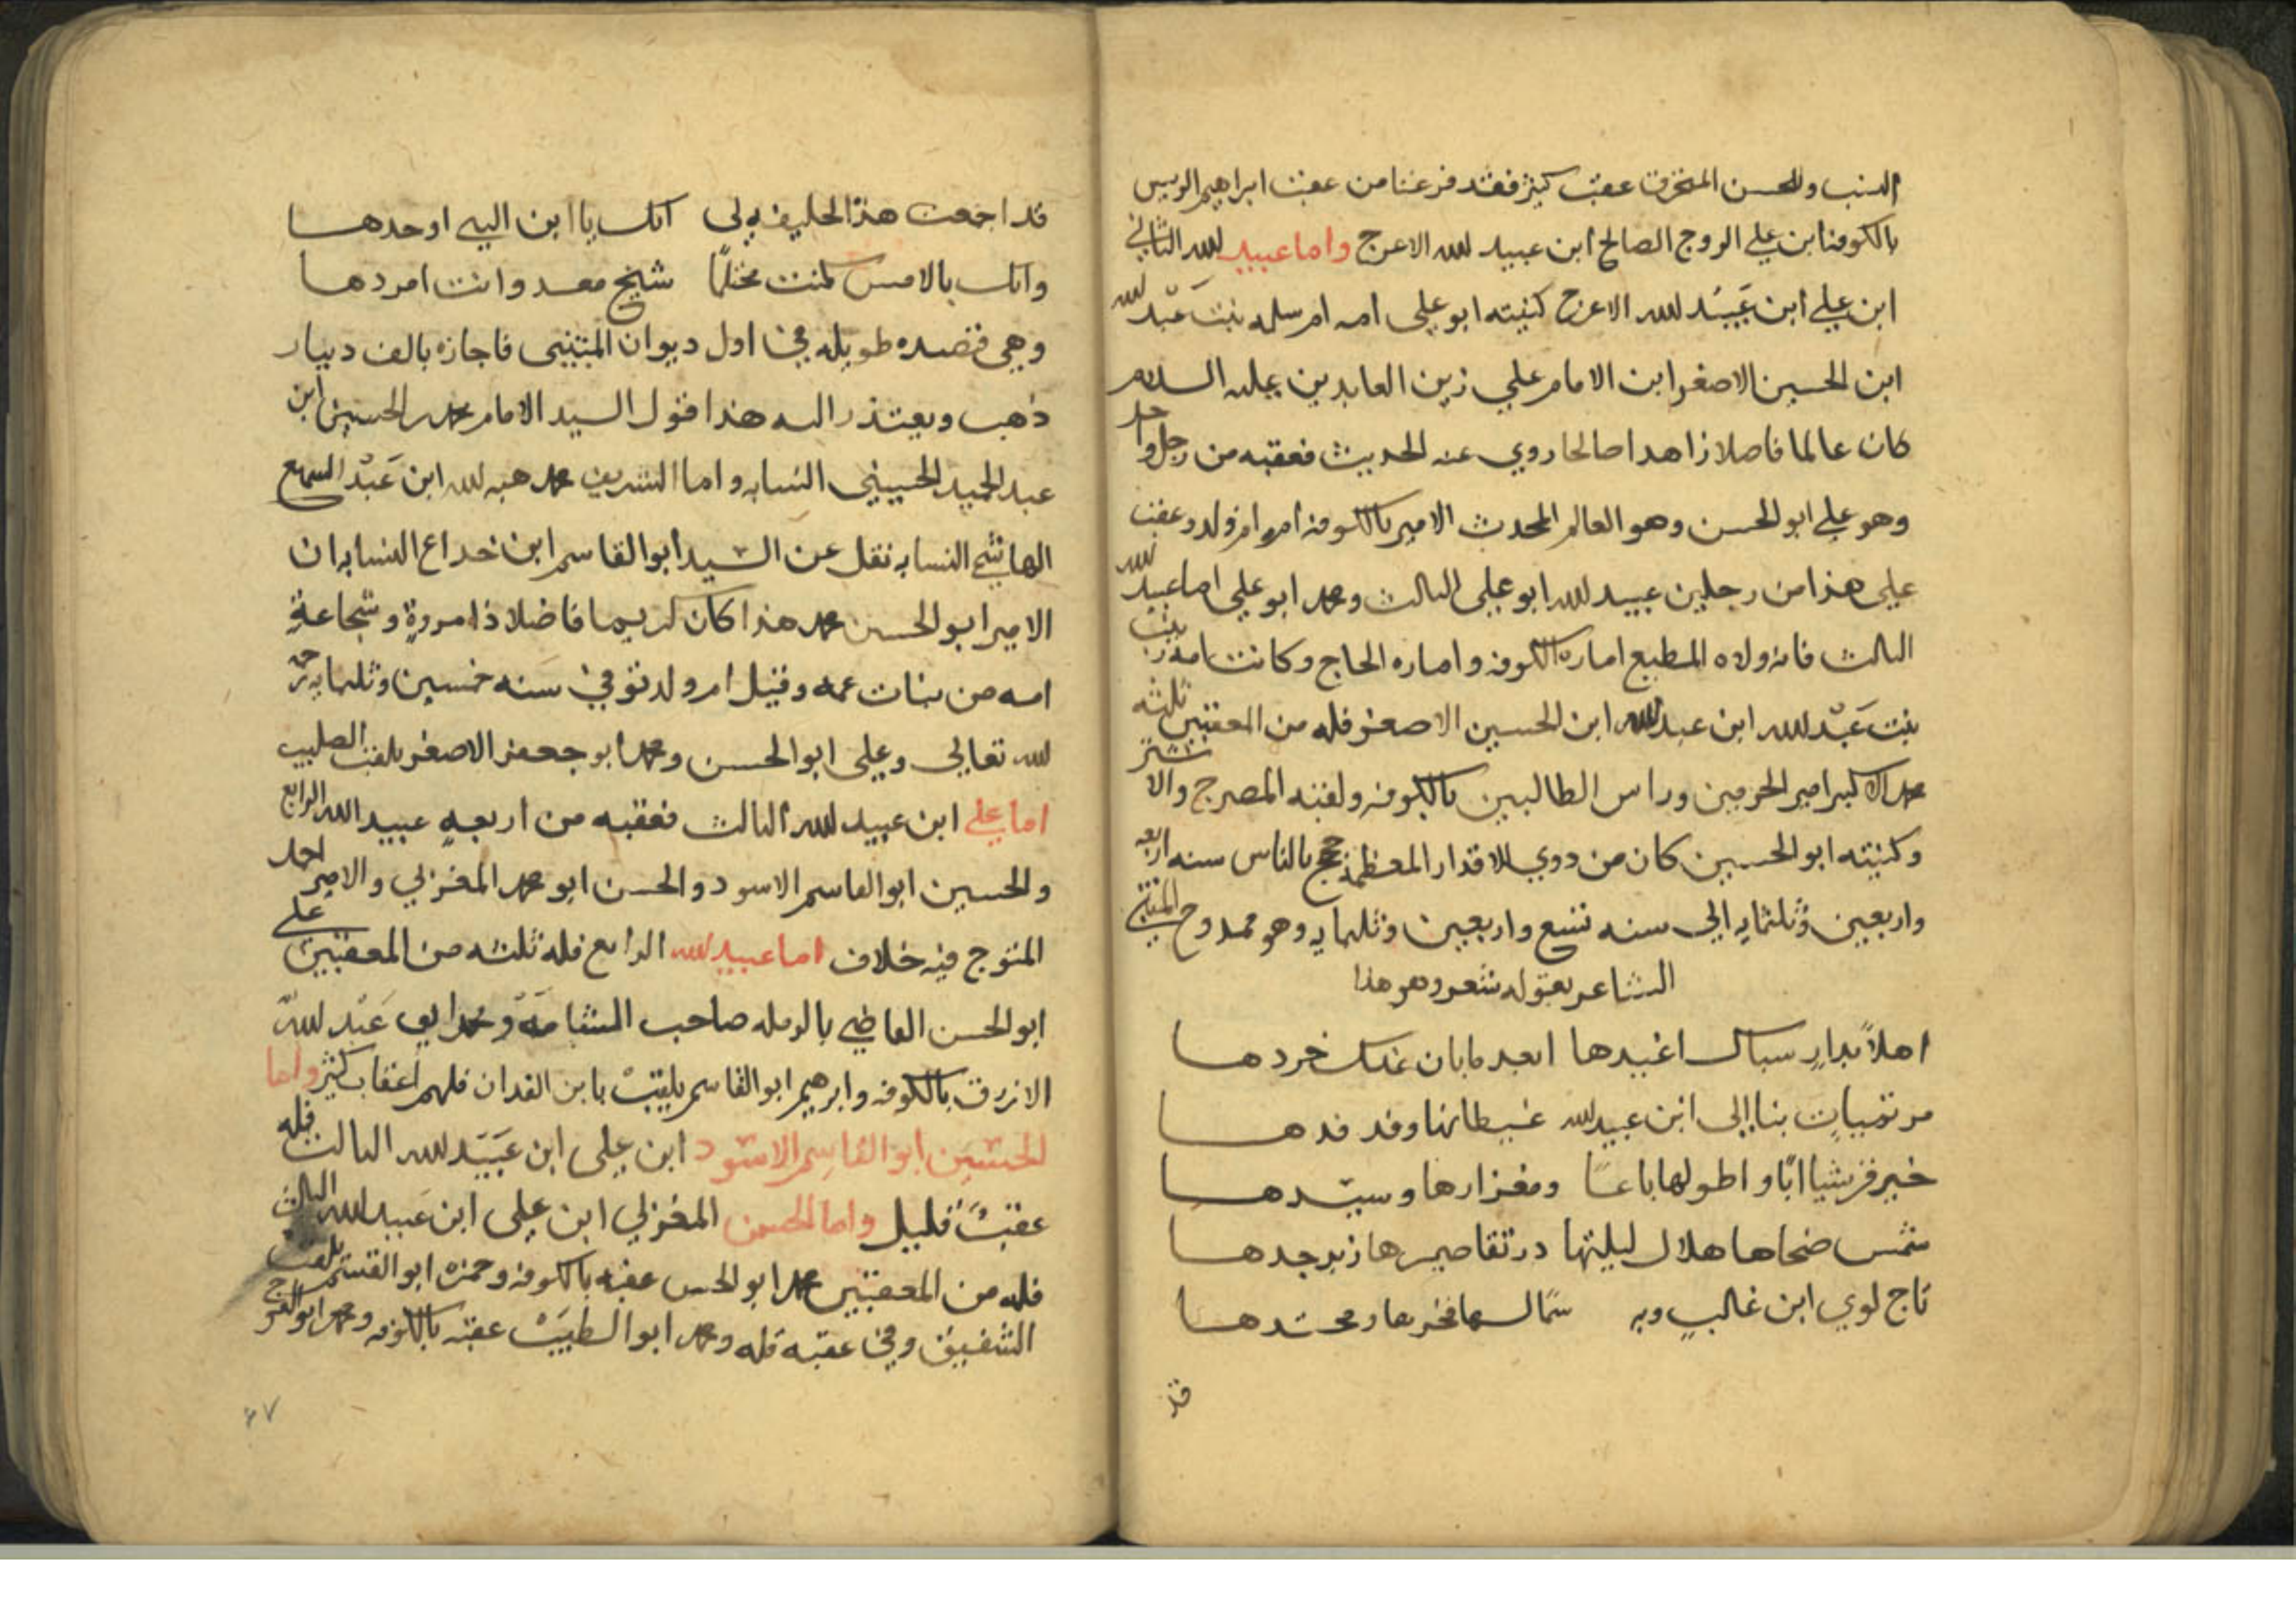 النسب وللحسن المحترق عقب كثير فقد فرغنا من عقب ابراهيم الريس
بالكوفة ابن علي الزوج الصالح ابن عبيد لله الاعرج واما عبيد لله الثاني
ابن علي ابن عبيد لله الاعرج كنيته ابو علي امه ام سلمه بنت عبد لله
ابن الحسين الاصغر ابن الامام علي زين العابدين عليه السلام
كان عالما فاضلا زاهدا صالحا روي عنه الحديث فعقبه من رجل واحد
وهو علي ابو الحسن وهو العالم المحدث الامير بالكوفه امه ام ولد وعقب
علي هذا من رجلين عبيد لله ابو علي الثالث ومحمد ابو علي اما عبيد لله
الثالث فانه ولاه المطيع اماره الكوفه واماره الحاج وكانت امه زينب
بنت عبد لله ابن عبد لله ابن الحسين الاصغر فله من المعقبين ثلثه
محمد الاكبر امير الحرمين وراس الطالبين بالكوفه ولقبه المصرج والاشتر
وكنيته ابو الحسين كان من ذوي الاقدار المعظمة حج بالناس سنه اربعه
واربعين وثلثمايه الي سنه تسع واربعين وثلثمايه وهو ممدوح المتنبي
الشاعر بقوله شعر وهو هذا
اهلاً بدارٍ سباك اغيدها ابعد مابان عنك خردها
مرتميات بنا الى ابن عبيد لله غيطانها وفدفدها
خير قريش اباً واطولها باعاً ومغزارها وسيّدها
شمس ضحاها هلال ليلتها در تقاصيرها زبرجدها
تاج لوي ابن غالبٍ وبه سما لها فخرها ومحتدها
قد
قد اجمعت هذا الخليفه لي انك يا ابن النبي اوحدها
وانك بالامس كنت محتلماً شيخ معد وانت امردها
وهي قصيده طويله في اول ديوان المتنبي فاجازه بالف دينار
ذهب ويعتذر اليه هذا قول السيد الامام محمد بن الحسين ابن
عبد الحميد الحسيني النسابه واما الشريف محمد هبه لله ابن عبد السميع
الهاشمي النسابه نقل عن السيد ابو القاسم ابن خداع النسابه ان
الامير ابو الحسن محمد هذا كان كريما فاضلا ذا مروةٍ وشجاعةٍ
امه من بنات عمه وقيل ام ولد توفي سنه خمسين وثلثمايه رحمه
لله تعالي وعلي ابو الحسن ومحمد ابو جعفر الاصغر يلقب الصليب
اما علي ابن عبيد لله الثالث فعقبه من اربعهٍ عبيد الله الرابع
والحسين ابو القاسم الاسود والحسن ابو محمد المغزلي والامير احمد
المتوج فيه خلاف اما عبيد لله الرابع فله ثلثه من المعقبين علي
ابو الحسن القاضي بالرمله صاحب الشامة ومحمد ابي عبد لله
الازرق بالكوفه وابرهيم ابو القاسم يلقب بابن الفدان فلهم اعقاب كثير واما
الحسين ابو القاسم الاسود ابن علي ابن عبيد لله الثالث فله
عقب قليل واما الحسن المغزلي ابن علي ابن عبيد لله الثالث
فله من المعقبين محمد ابو الحسن عقبه بالكوفه وحمزه ابو القسم يلقب
الشفيق وفي عقبه قله ومحمد ابو الطيب عقبه بالكوفه ومحمد ابو الفرج
٤٧